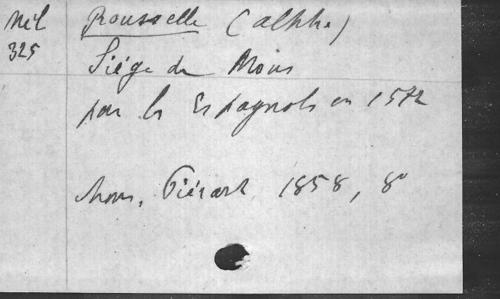 Mél Rousselle (Alphse)
325
Siége de Mons
par les Espagnols en 1572
Mons, Piérart 1858, 8°